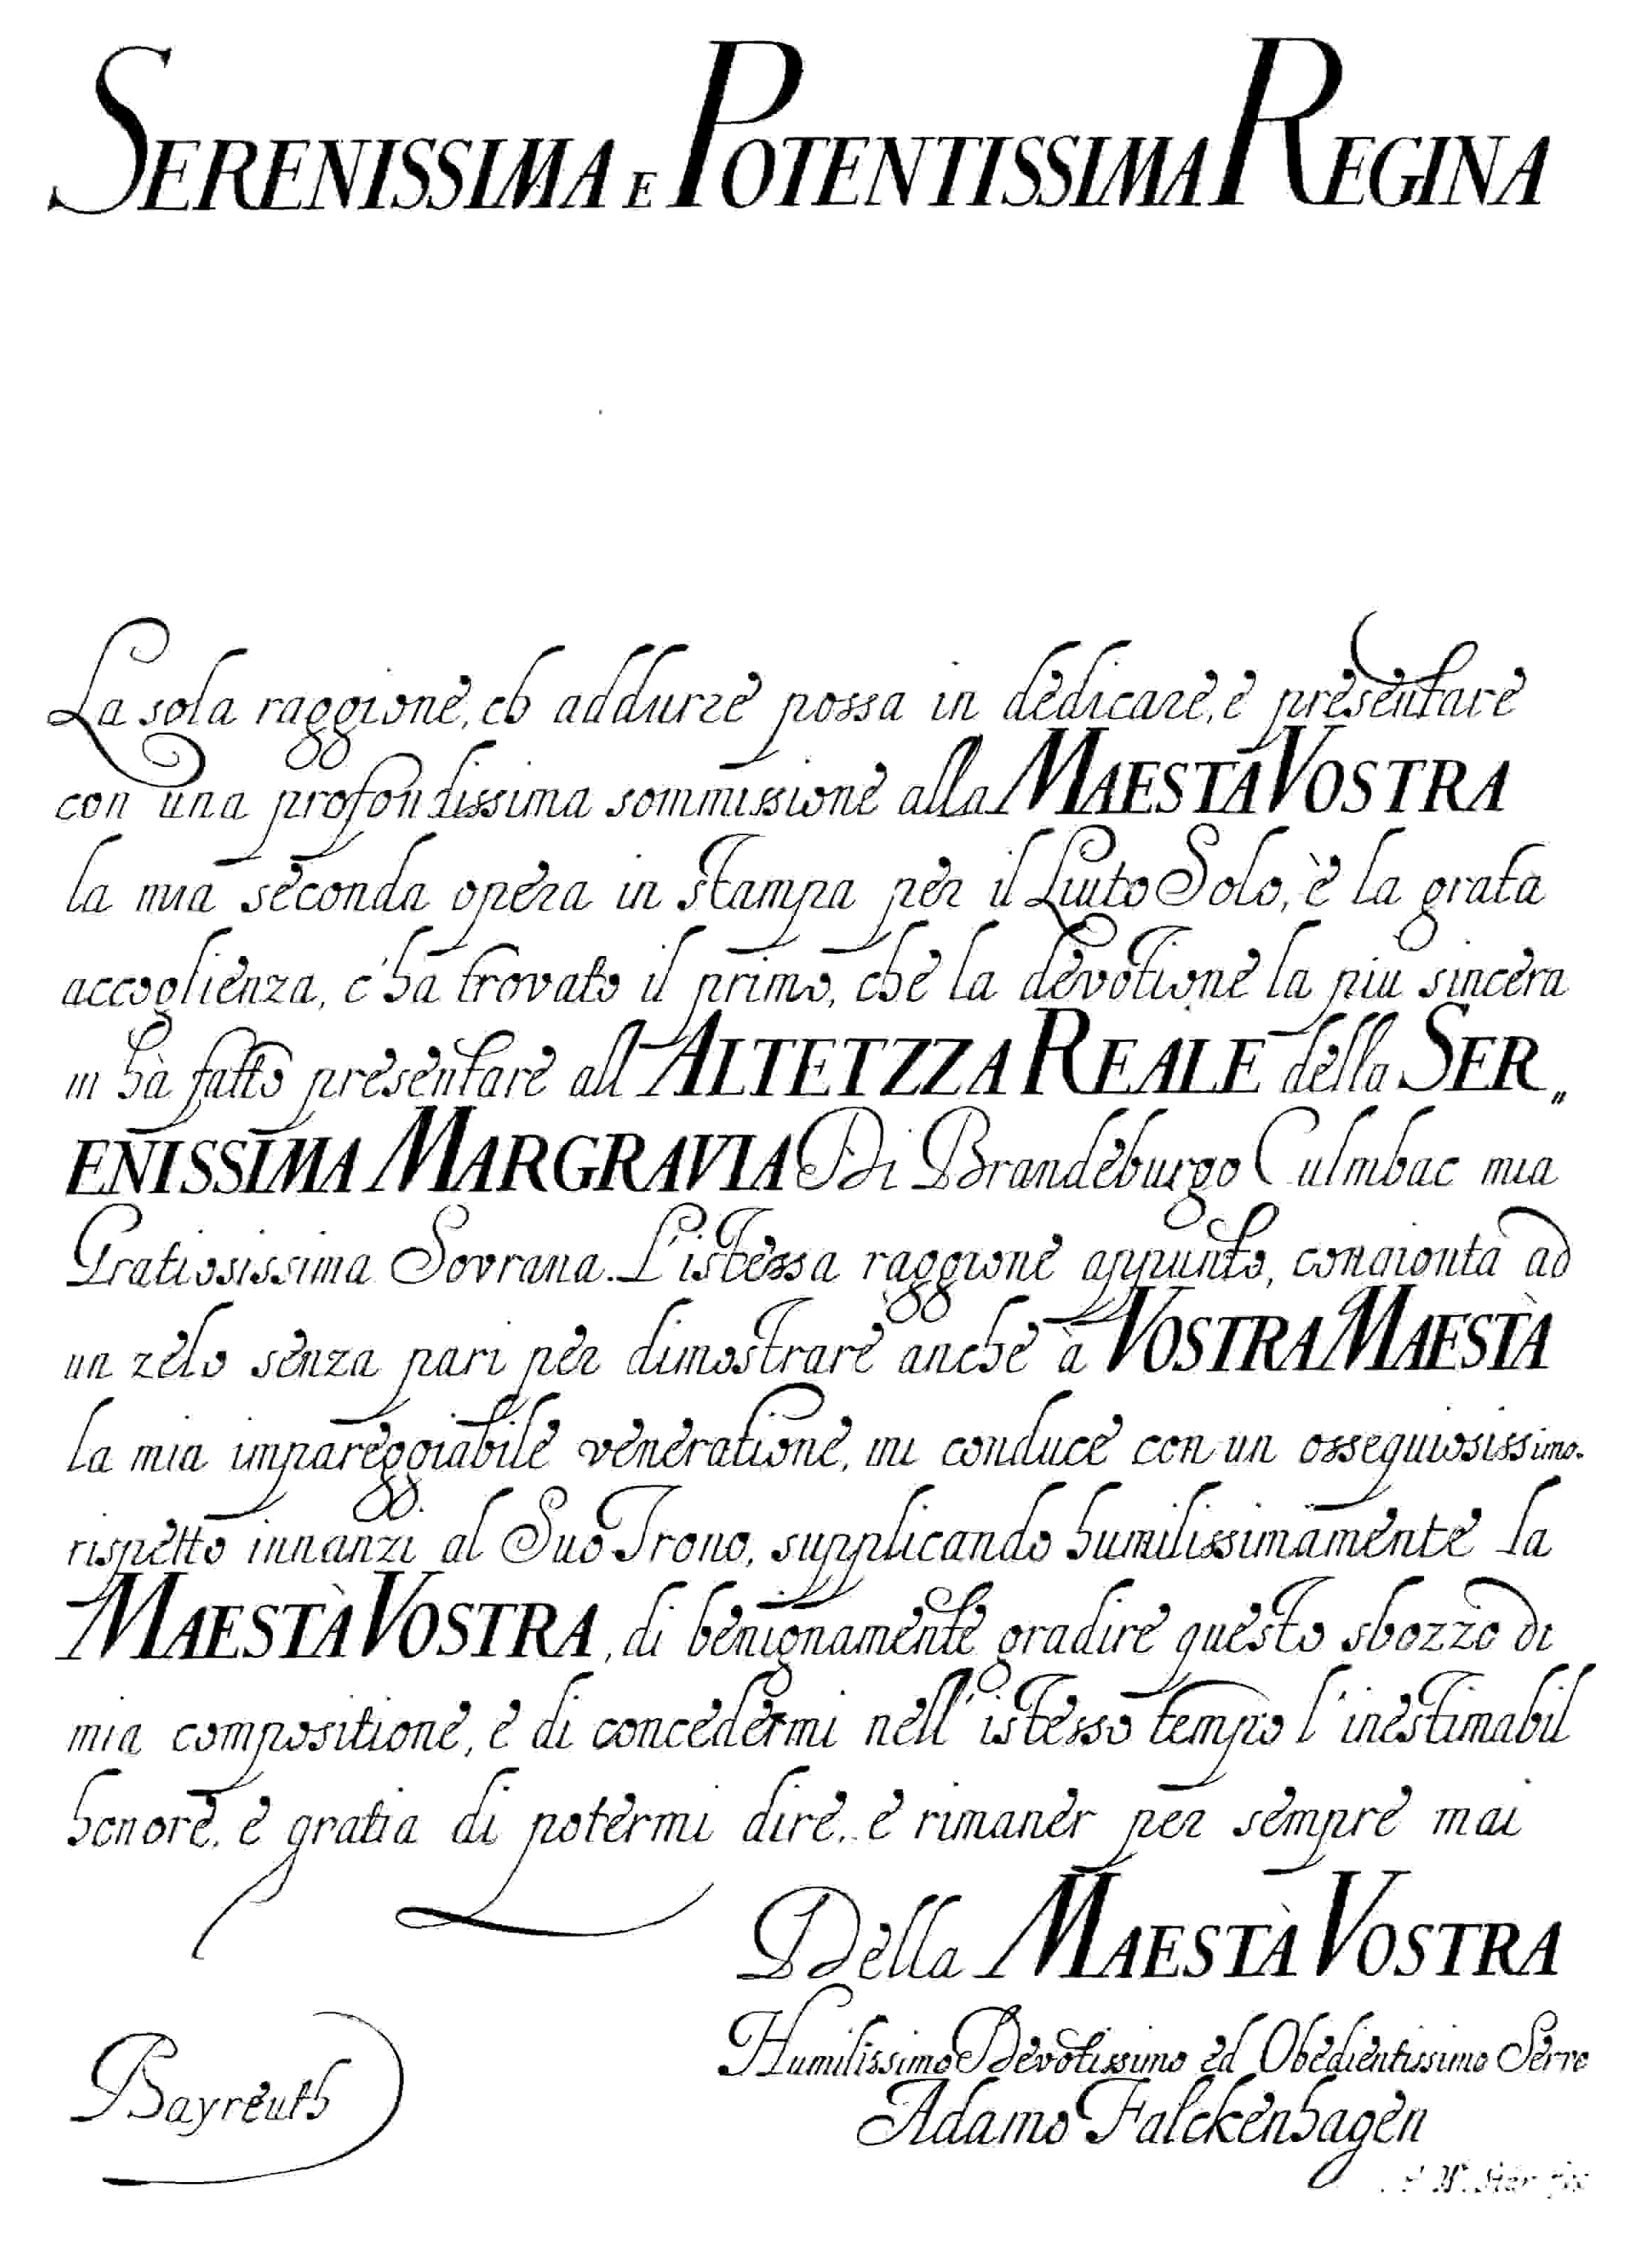 SERENISSIMA E POTENTISSIMA REGINA
La sola raggione, ch addurre possa in dedicare, e presentare
con una profondissima sommissione alla MAESTÀ VOSTRA
la mia seconda opera in stampa per il Liuto Solo, è la grata
accoglienza, c'ha trovato il primo, che la devotione la piu sincera
m hà fatto presentare all ALTETZZA REALE della SER„
ENISSIMA MARGRAVIA Di Brandeburgo Culmbac mia
Gratiosissima Sovrana. L'istessa raggione appunto, congionta ad
un zelo senza pari per dimostrare anche à VOSTRA MAESTÀ
la mia impareggiabile veneratione, mi conduce con un ossequiosissimo.
rispetto innanzi al Suo Trono, supplicando humilissimamente la
MAESTÀ VOSTRA, di benignamente gradire questo sbozzo di
mia compositione, e di concedermi nell' istesso tempo l'inestimabil
honore, e gratia di potermi dire, e rimaner per sempre mai
Della MAESTÀ VOSTRA
Humilissimo Devotissimo ed Obedientissimo Servo
Adamo Falckenhagen
Bayreuth